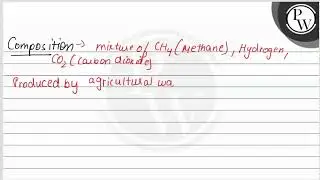 Composition → mixture of CH4 (Methane), Hydrogen,
CO2 (Carbon dioxide)
Produced by agricultural wa
PW